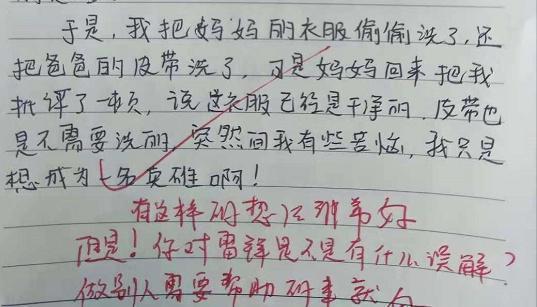 于是，我把妈妈的衣服偷偷洗了，还
把爸爸的皮带洗了，可是妈妈回来把我
批评了一顿，说这衣服已经是干净的，皮带也
是不需要洗的，突然间我有些苦恼，我只是
想成为一名英雄啊！
有这样的想法非常好
但是！你对雷锋是不是有什么误解？
做别人需要帮助的事就